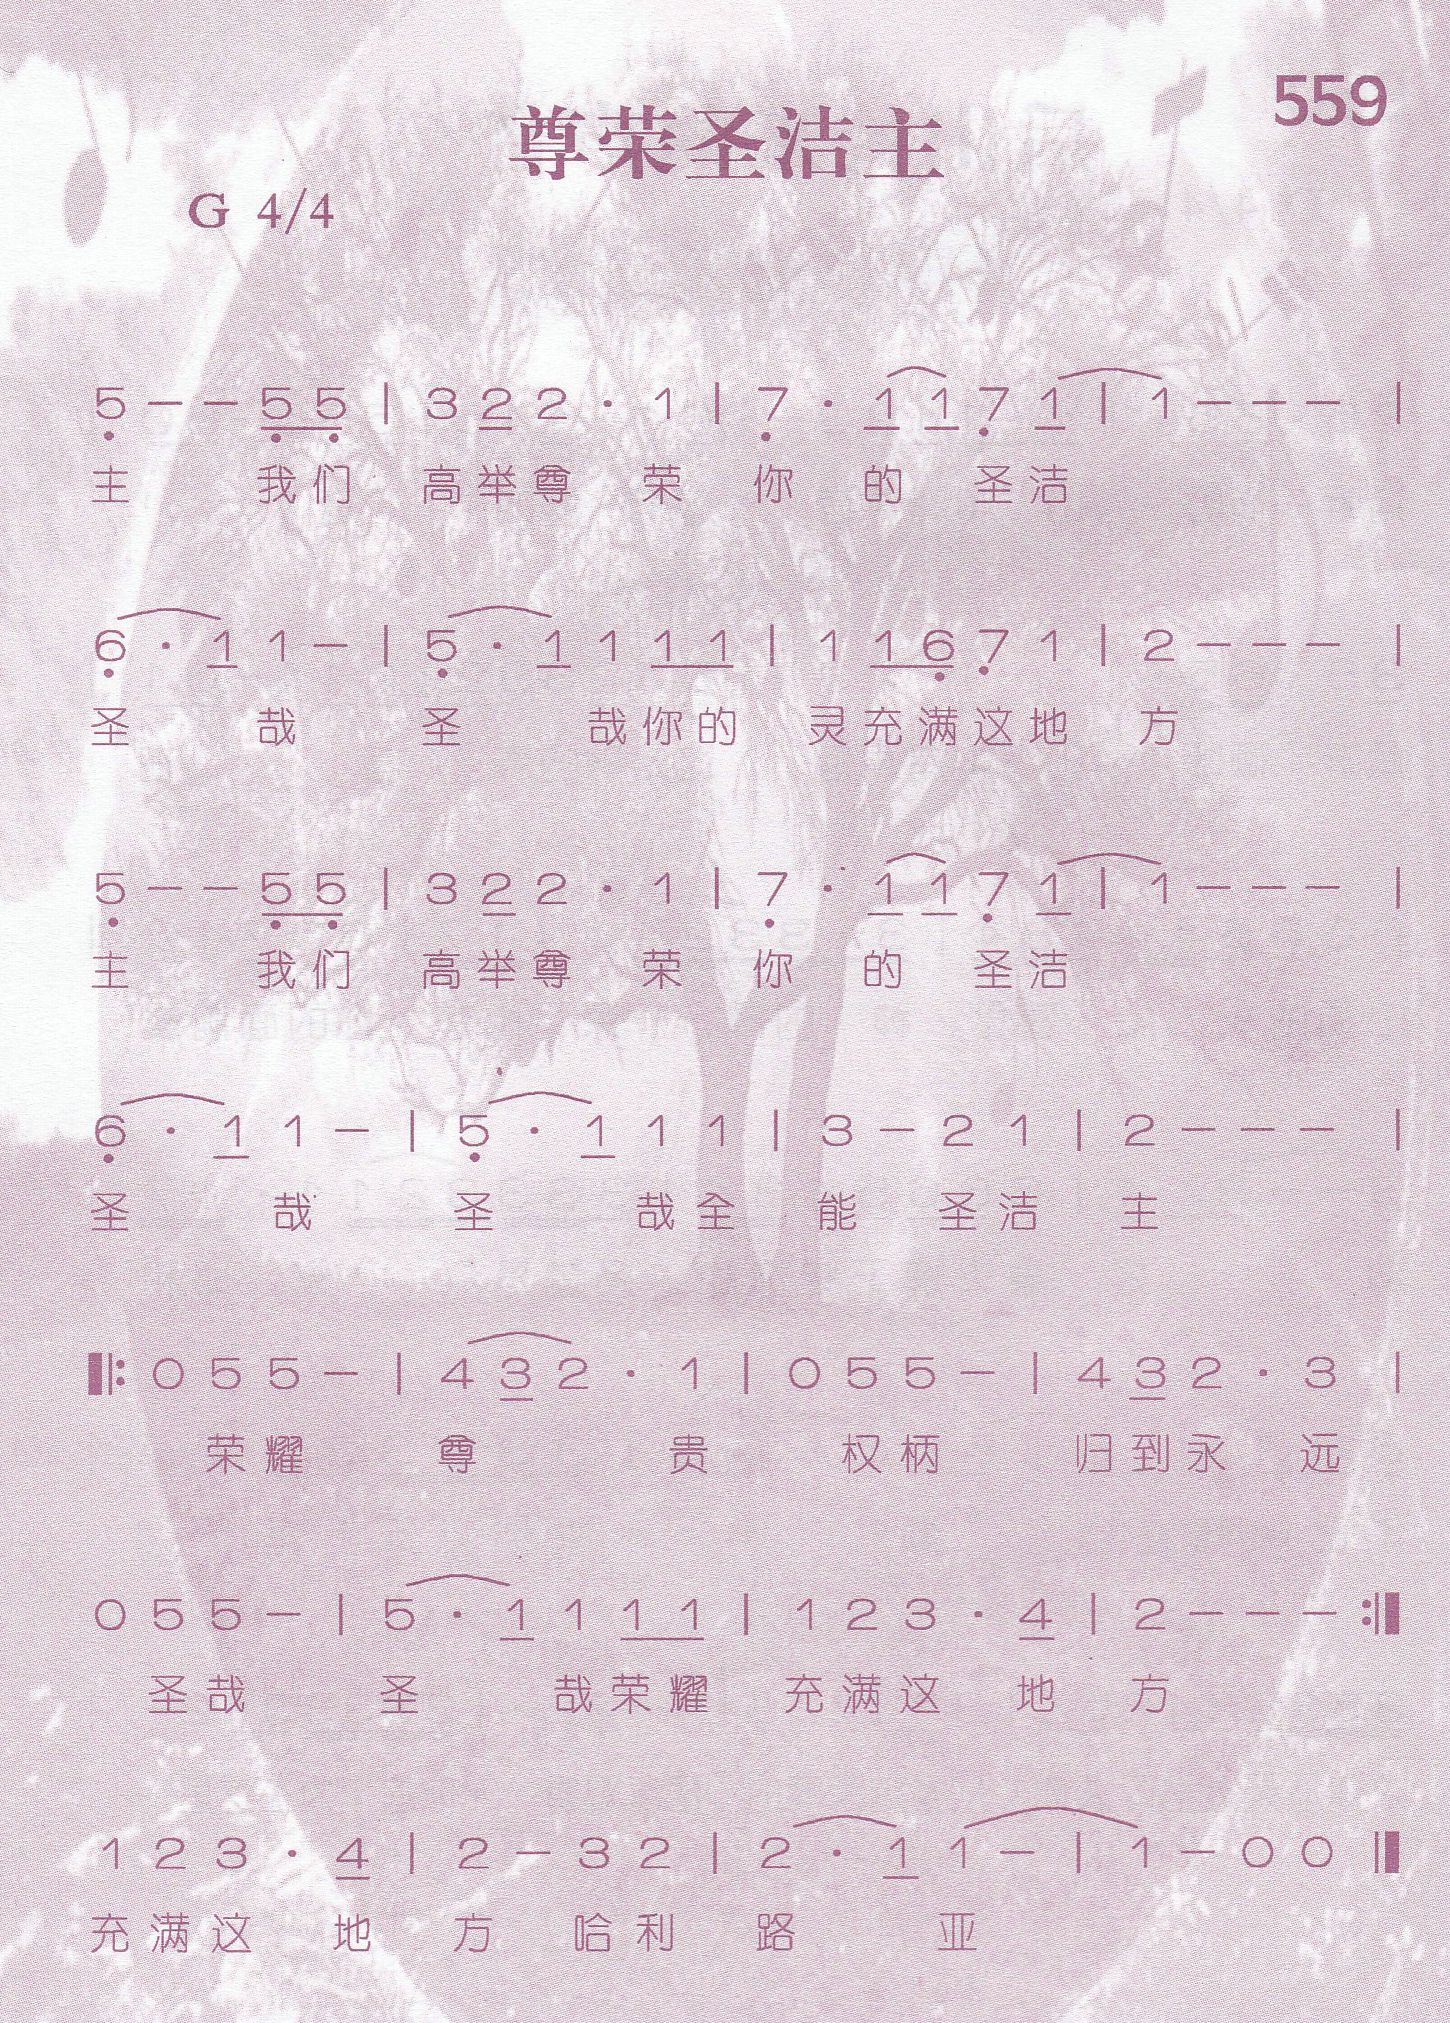 559
尊荣圣洁主
G 4/4
5 – – 5 5 | 3 2 2 · 1 | 7 · 1 1 7 1 | 1 – – – |
主 我们 高举尊 荣 你 的 圣洁
6 · 1 1 – | 5 · 1 1 1 1 | 1 1 6 7 1 | 2 – – – |
圣 哉 圣 哉你的 灵充满这地 方
5 – – 5 5 | 3 2 2 · 1 | 7 · 1 1 7 1 | 1 – – – |
主 我们 高举尊 荣 你 的 圣洁
6 · 1 1 – | 5 · 1 1 1 | 3 – 2 1 | 2 – – – |
圣 哉 圣 哉全 能 圣洁 主
‖: 0 5 5 – | 4 3 2 · 1 | 0 5 5 – | 4 3 2 · 3 |
荣耀 尊 贵 权柄 归到永 远
0 5 5 – | 5 · 1 1 1 1 | 1 2 3 · 4 | 2 – – – :‖
圣哉 圣 哉荣耀 充满这 地 方
1 2 3 · 4 | 2 – 3 2 | 2 · 1 1 – | 1 – 0 0 ‖
充满这 地 方 哈利 路 亚